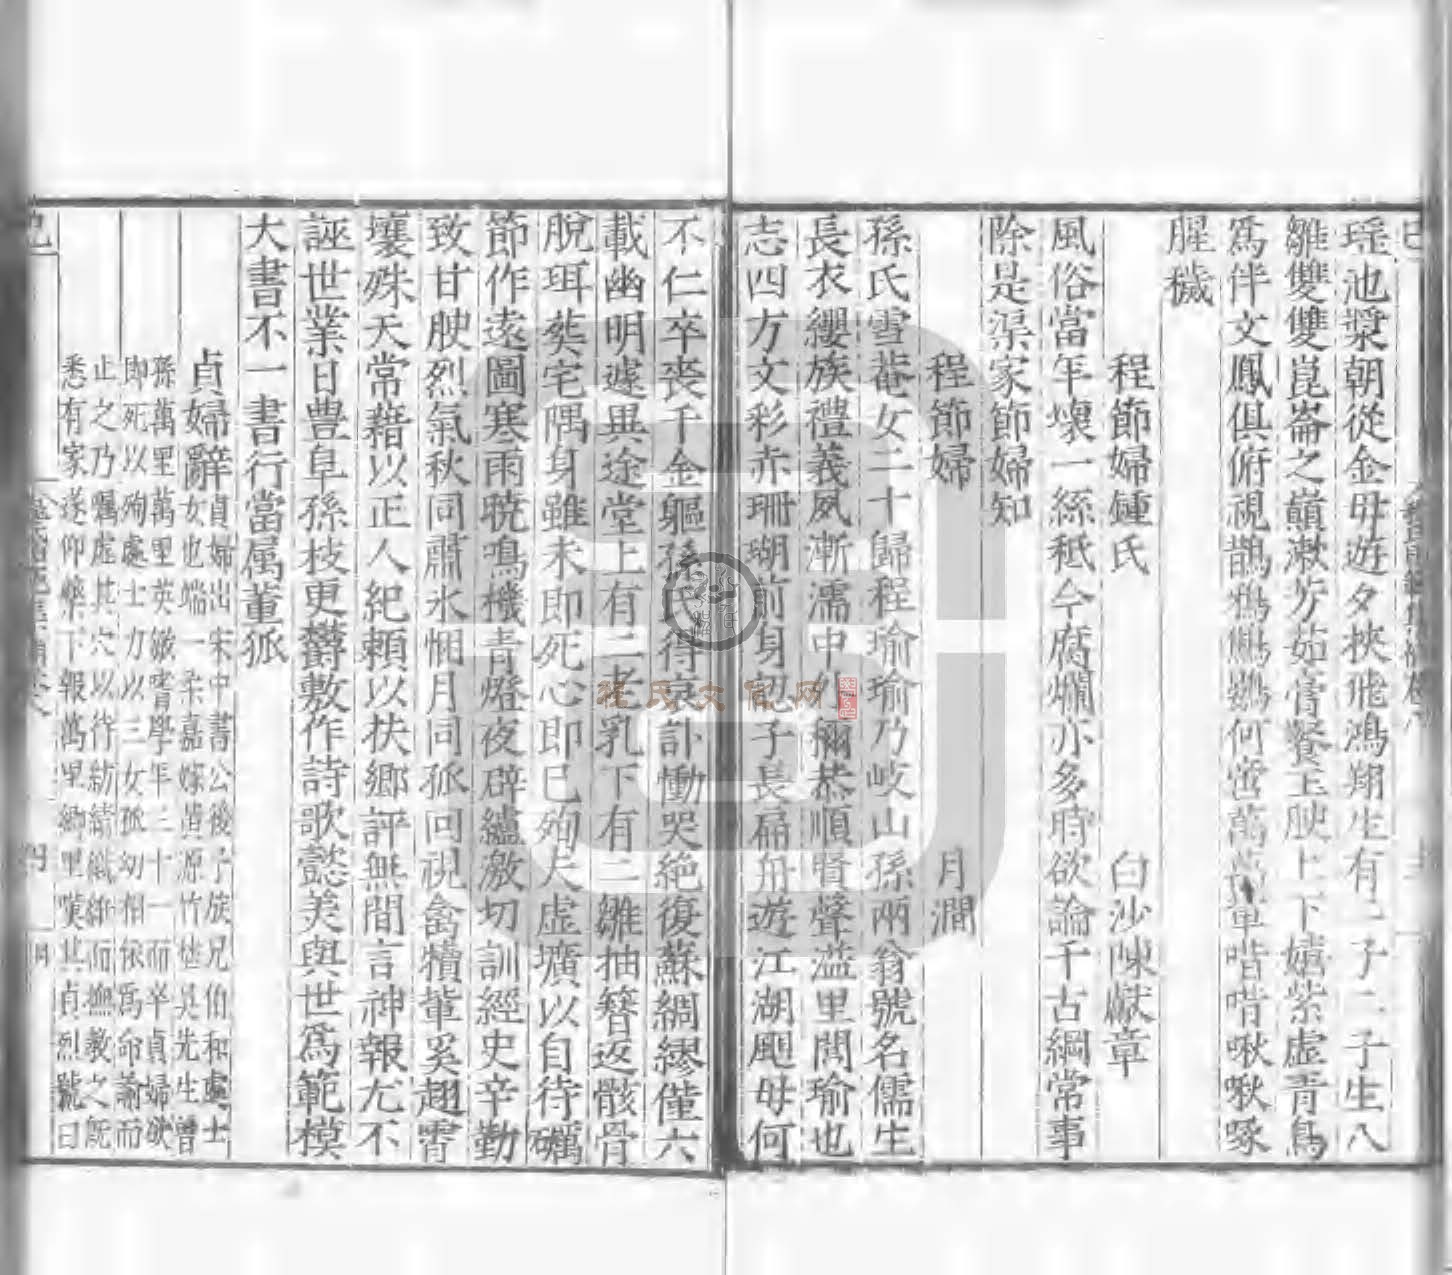 瑤池漿朝從金母遊夕挾飛鴻翔生有一子二子生八
雛雙雙崑崙之巔漱芳茹膏餐玉腴上下嬉紫虛青鳥
爲伴文鳳俱俯視鵲鴉何啻萬輩喈喈啾啾啄
腥穢
程節婦鍾氏 白沙陳獻章
風俗當年壞一絲秪今腐爛亦多時欲論千古綱常事
除是渠家節婦知
程節婦 月澗
孫氏雪菴女二十歸程瑜瑜乃岐山孫兩翁號名儒生
長衣纓族禮義夙漸濡中彌恭順賢聲溢里閭瑜也
志四方文彩赤珊瑚前身子長扁舟遊江湖颶母何
不仁卒喪千金軀孫氏得哀訃慟哭絶復蘇綢繆僅六
載幽明遽異途堂上有二老乳下有二雛抽簪返骸骨
脫珥葬宅隅身雖未即死心即已殉夫虛壙以自待礪
節作遠圖寒雨曉鳴機青燈夜辟纑激切訓經史辛勤
致甘腴烈氣秋同肅氷悃月同孤回視禽犢輩奚趐霄
壤殊天常藉以正人紀賴以扶鄉評無間言神報尤不
誣世業日豊阜孫枝更欝敷作詩歌懿美與世爲範模
大書不一書行當属董狐
貞婦辭貞婦出宋中書公後子族兄伯和處士
女也端一柔嘉嫁湝源竹其先生曾
孫萬里萬里英敏嗜學年三十一而卒貞婦欲
即死以殉處士力以三女孤幼相依爲命諭而
止之乃囑虛其穴以待紡績織紝而撫教之既
悉有家遂仰藥下報萬里鄉里嘆其貞烈競曰